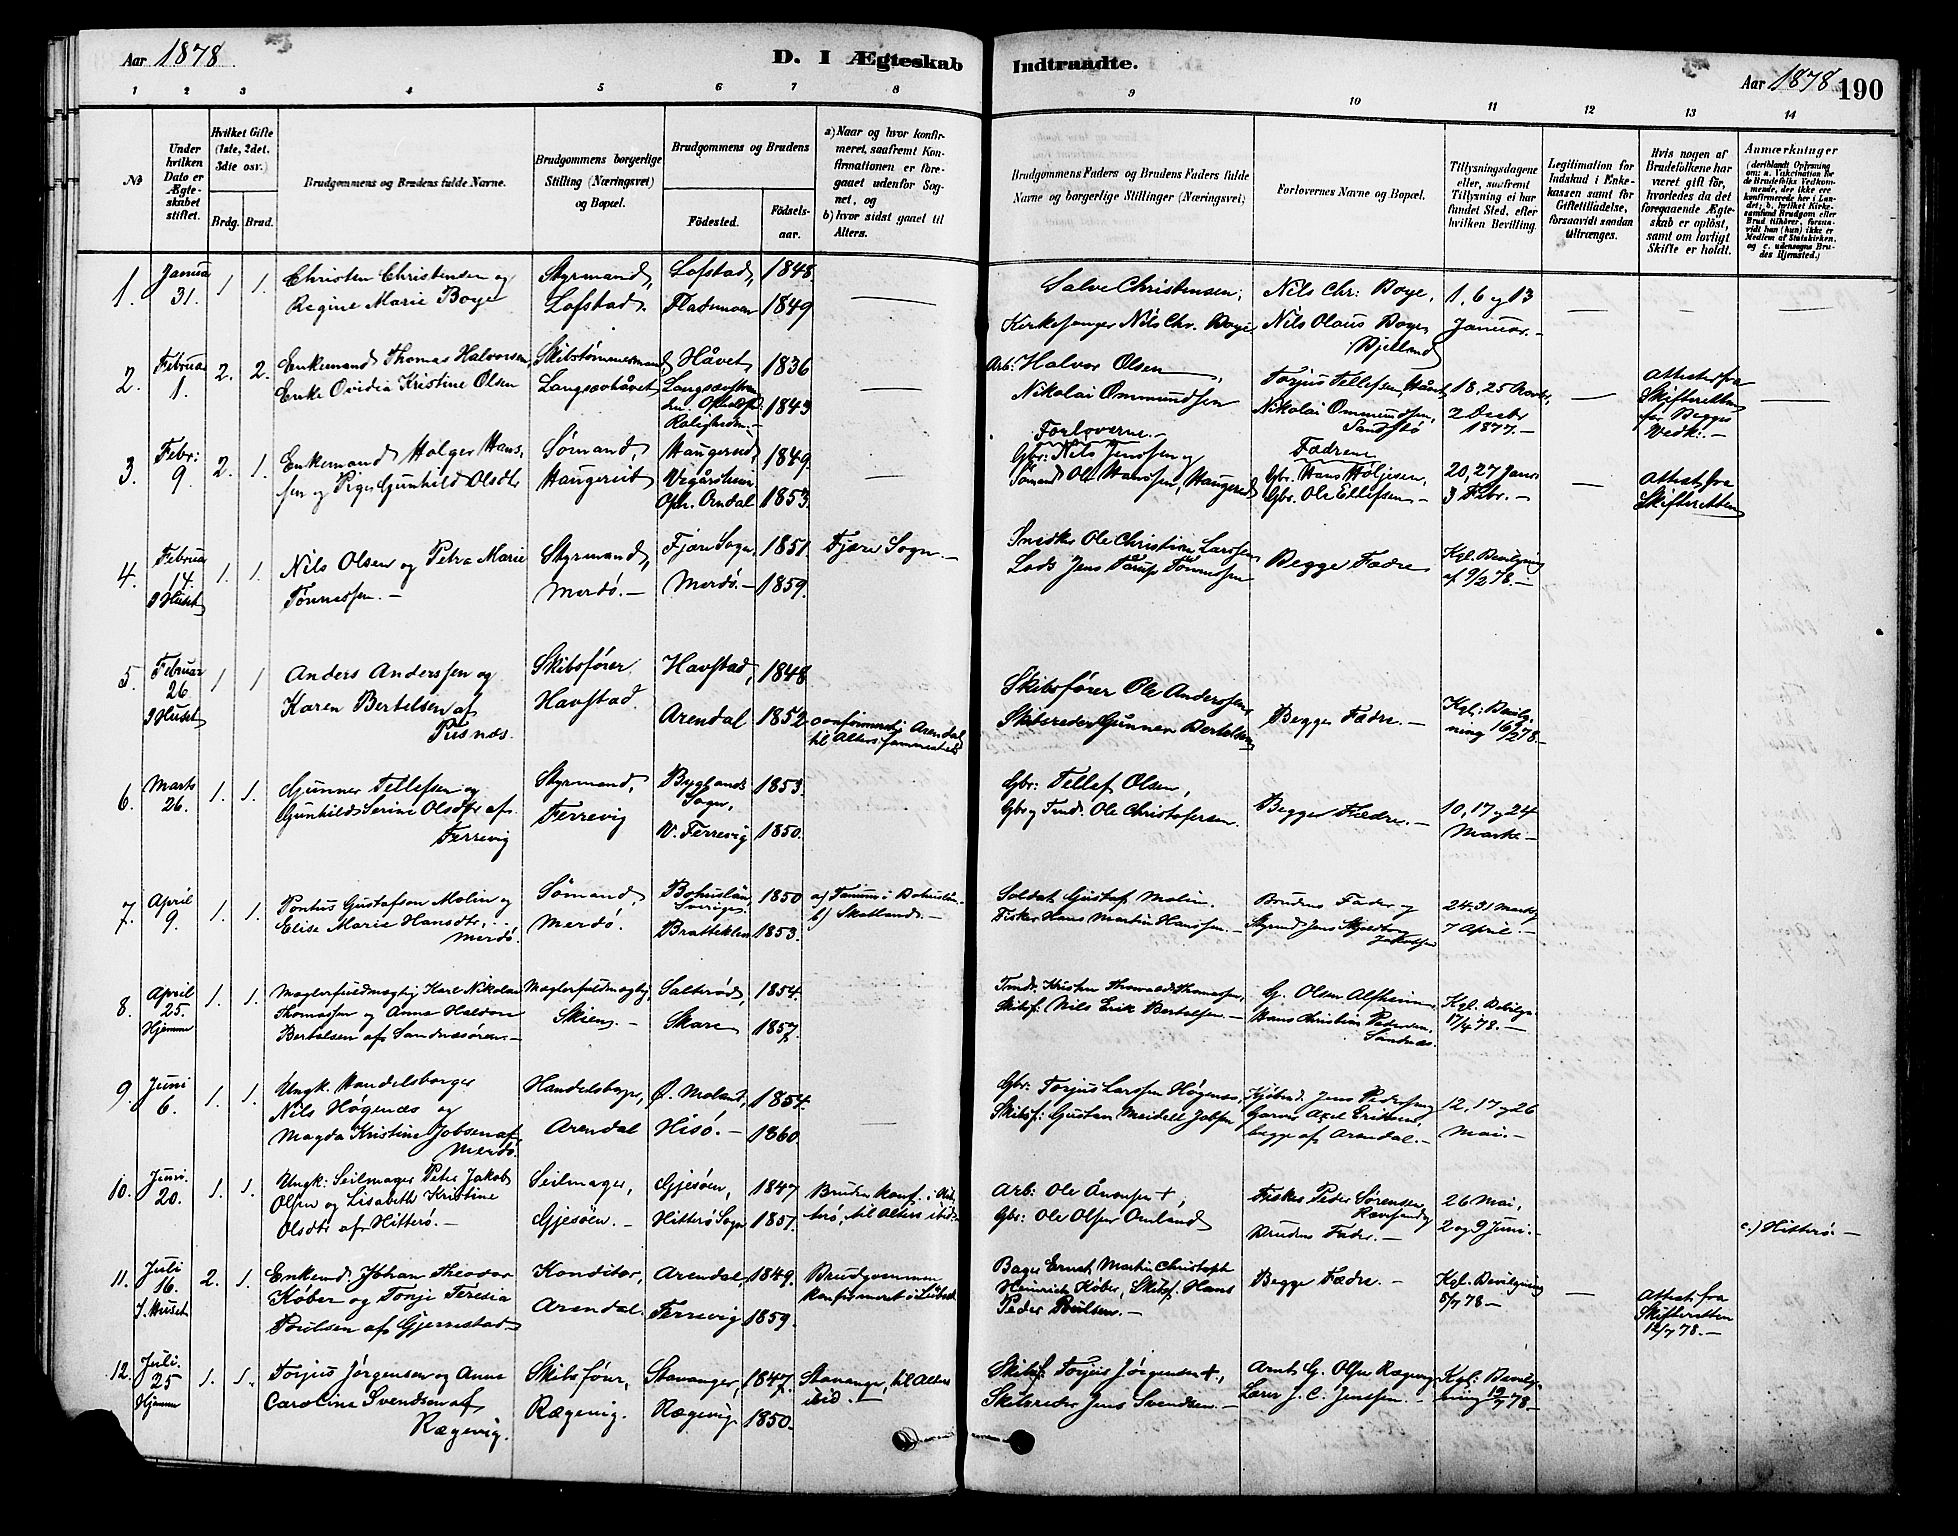 Aar 1878.
D. I Ægteskab
1 2 3 4 5 6 7 8
№
Under hvilken Dato er Ægteskabet stiftet.
Hvilket Gifte (1ste, 2det, 3die osv.)
Brdg. Brud.
Brudgommens og Brudens fulde Navne.
Brudgommens borgerlige Stilling (Næringsvei) og Bopæl.
Brudgommens og Brudens
Fødested.
Fødselsaar.
a) Naar og hvor konfirmeret, saafremt Konfirmationen er foregaaet udenfor Sognet, og
b) hvor sidst gaaet til Alters.
Indtraadte.
Aar 1878. 190
9 10 11 12 13 14
Brudgommens Faders og Brudens Faders fulde Navne og borgerlige Stillinger (Næringsvei)
Forlovernes Navne og Bopæl.
Tillysningsdagene eller, saafremt Tillysning ei har fundet Sted, efter hvilken Bevilling.
Legitimation for Indskud i Enkekassen samt for Giftetilladelse, forsaavidt saadan udkrænges.
Hvis nogen af Brudefolkene har været gift før, hvorledes da det foregaaende Ægteskab er opløst, samt om lovligt Skifte er holdt.
Anmærkninger
1. Januar 31. 1 1.
Christen Christensen og
Regine Marie Boye
Styrmand, Lofstad.
Lofstad, 1848.
Flademoen 1849
Salve Christensen,
Kirkesanger Nils Chr. Boye
Nils Chr: Boye,
Nils Olaus Boye
Bjelland
1, 6 og 13
Januar.
2. Februar 1. 2. 2.
Enkemand Thomas Halvorsen,
Enke Ovidia Kristine Olsen
Skibstømmermand
Langsævhåvet
Håvet 1836
1843
Arb: Halvor Olsen,
Nikolai Ommundsen
Torjus Tellefsen, Håvet
Nikolai Ommundsen,
Sandstø
18, 25 Novbr,
2 Decbr
1877.
Attest fra
Skifteretten
for Begges
Vedk:
3. Febr: 9. 2. 1.
Enkemand Holger Hans-
sen og Pige Gunhild Olsdtr
Sømand,
Haugerud
Haugerud, 1849.
Oph. Arndal 1853.
Forloverne.
Gbr: Nils Jenssen og
Sømand Ole Hanssen, Haugerud
Fædrene
Gbr. Hans Holjesen,
Gbr. Ole Ellefsen
20, 27 Janr
3 Febr.
Attest fra
Skifteretten
4. Februar 14. I Huset 1. 1.
Nils Olsen og Petra Marie
Tønnessen.
Styrmand,
Merdø.
Fjære Sogn, 1851.
Merdø. 1859.
Fjære Sogn.
Smeder Ole Christian Larssen
Lods Jens Tarup Tønnessen
Begge Fædre
Kgl. Bevilgning
af 9/2 78.
5. Februar 26 I Huset 1 1
Anders Anderssen og
Karen Bertelsen af
Pusnæs.
Skibsfører.
Havstad.
Havstad, 1848
Arendal 1852.
confirmert i Arendal
til Alters sammesteds
Skibsfører Ole Anderssen,
Skibsreder Gunner Bertelsen
Begge Fædre.
Kgl: Bevilg-
ning 16/2 78.
6. Marts 26. 1. 1.
Gunner Tellefsen og
Gunhild Serine Olsdtr af
Ferrevig
Styrmand,
Ferrevig
Byglands
Sogn, 1853.
V. Ferrevig 1850.
Gbr: Tellef Olsen,
Gbr. og Tmd. Ole Christofersen.
Begge Fædre.
10, 17 og 24
Marts
7. April 9. 1. 1.
Pontus Gustafson Molin og
Elise Marie Hansdtr,
Merdø.
Sømand,
Merdø.
Bohuslän
Sverige. 1850
Bratteklev 1853.
a) Tanum i Bohuslän.
b) Skotland.
Soldat Gustaf Molin.
Fisker Hans Martin Hanssen.
Brudens Fader og
Styrmd. Jens Skjoldborg
Jakobsen
24. 31 Marts,
7 April
8. April 25. Hjemme 1. 1.
Maglerfuldmægtig Karl Nikolai
Thomassen og Anna Haldora
Bertelsen af Sandnæsøren.
Maglerfuldmægtig,
Skien.
Salterød, 1854.
Skare 1857.
Tmd. Kristen Thorvald Thomassen,
Skibsf: Nils Erik Bertelsen.
G. Olsen Alfheim,
Hans Christian Pedersen,
Sandnæs.
Kgl. Bevilgn.
17/4 78.
9. Juni 6. 1. 1.
Ungk. Handelsborger
Nils Høgenæs og
Magda Kristine Jobsen af
Merdø.
Handelsborger,
Arendal
Ø. Moland, 1854.
Hisø. 1860
Gbr: Torjus Larssen Høgenæs,
Skibsf: Gustav Meidell Jobsen
Kjøbmd. Jens Pedersen,
Garver Axel Eriksen,
begge af Arendal.
12, 17 og 26
Mai.
10. Juni. 20. 1. 1.
Ungk: Seilmager Peter Jakob
Olsen og Lisabeth Kristine
Olsdtr af Hitterø.
Seilmager,
Gjesøen.
Gjesøen, 1847
Hitterø Sogn 1851.
Bruden konf. i Hit-
terø, til Alters ibid.
Arb: Ole Ånonsen +,
Gbr: Ole Olsen Omland
Fisker Peder Sørensen
Brudens Fader.
26 Mai,
2 og 9 Juni.
c.) Hitterø.
11. Juli 16. I Huset 2. 1.
Enkemd. Johan Theodor
Køber og Tonje Teresia
Poulsen af Gjerrestad
Konditor,
Arendal.
Arendal, 1849.
Ferrevig 1859.
Brudgommen
konfirmeret i Lübeck
Bager Ernst Martin Christoph
Heinrich Køber, Skibsf. Hans
Peder Poulsen.
Begge Fædre.
Kgl. Bevilgning
5/7 78
Attest fra
Skifteretten
12/7 78.
12. Juli. 25 Hjemme 1. 1.
Torjus Jørgensen og Anne
Caroline Svendsen af
Rægevig.
Skibsfører,
Rægevig.
Stavanger, 1847.
Rægevig. 1850.
Stavanger, til Alters
ibid.
Skibsf. Torjus Jørgensen +,
Skibsreder Jens Svendsen.
Arnt G. Olsen Rægevig
Lærer J. C. Jenssen.
Kgl: Bevilg-
ning 12/7 78